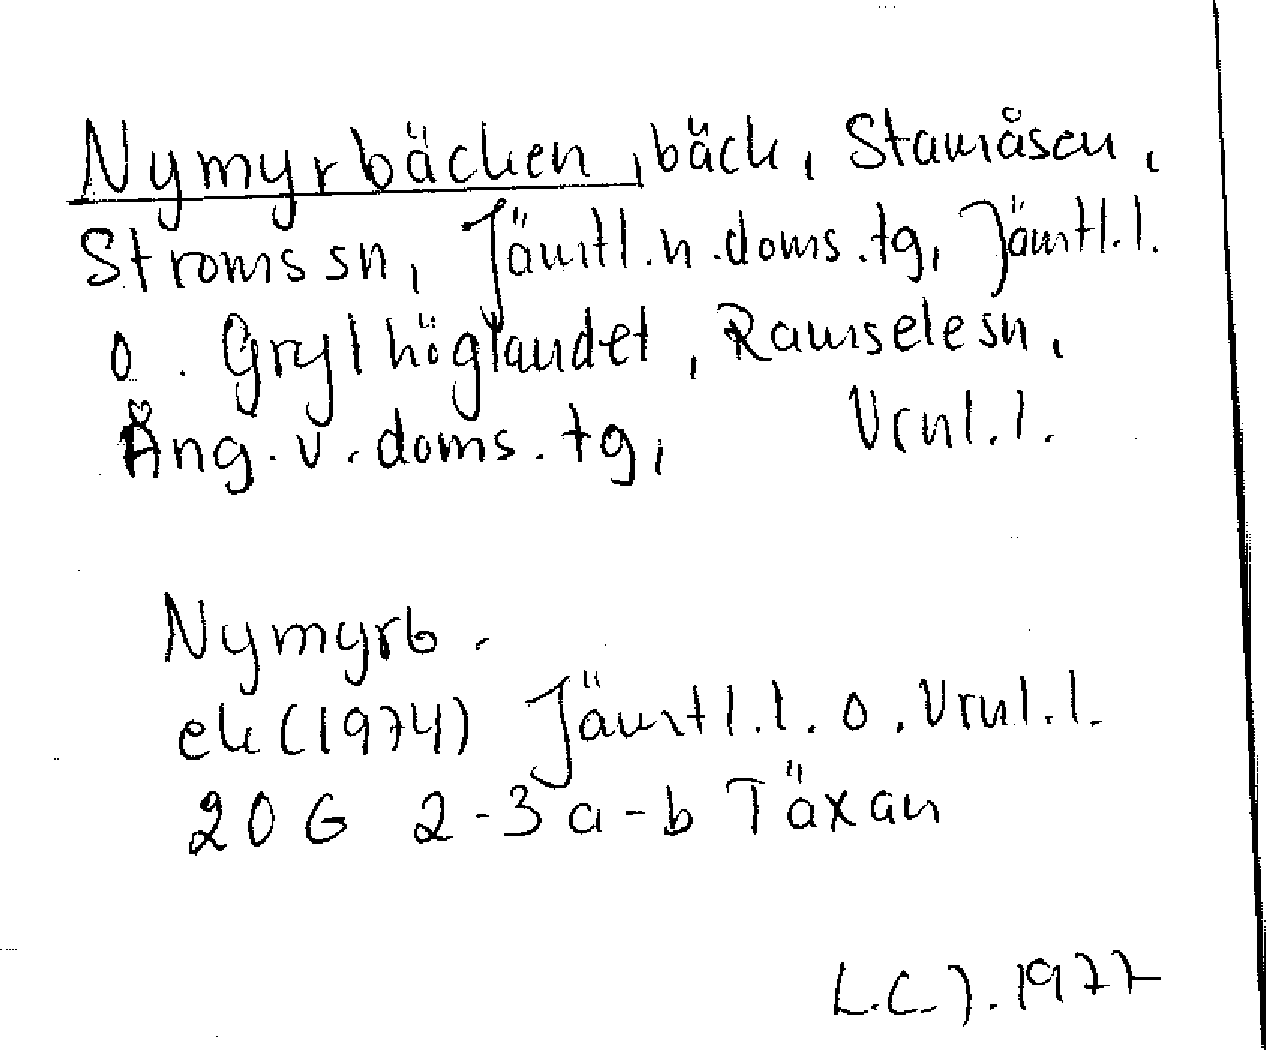 Nymyrbäcken, bäck, Stamåsen,
Ströms sn, Jämtl.n.doms.tg, Jämtl.l.
o. Grylhöglandet, Ramsele sn,
Ång.v.doms.tg, Vrnl.l.
Nymyrb.
ek (1974) Jämtl.l. o. Vrnl.l.
20 G 2-3 a-b Täxan
L.C.J. 1977